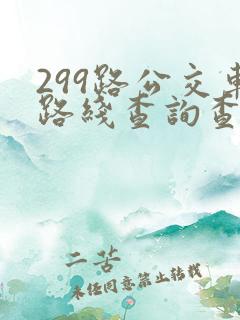 299路公交車
路綫查詢查
二苦
未經同意禁止轉載